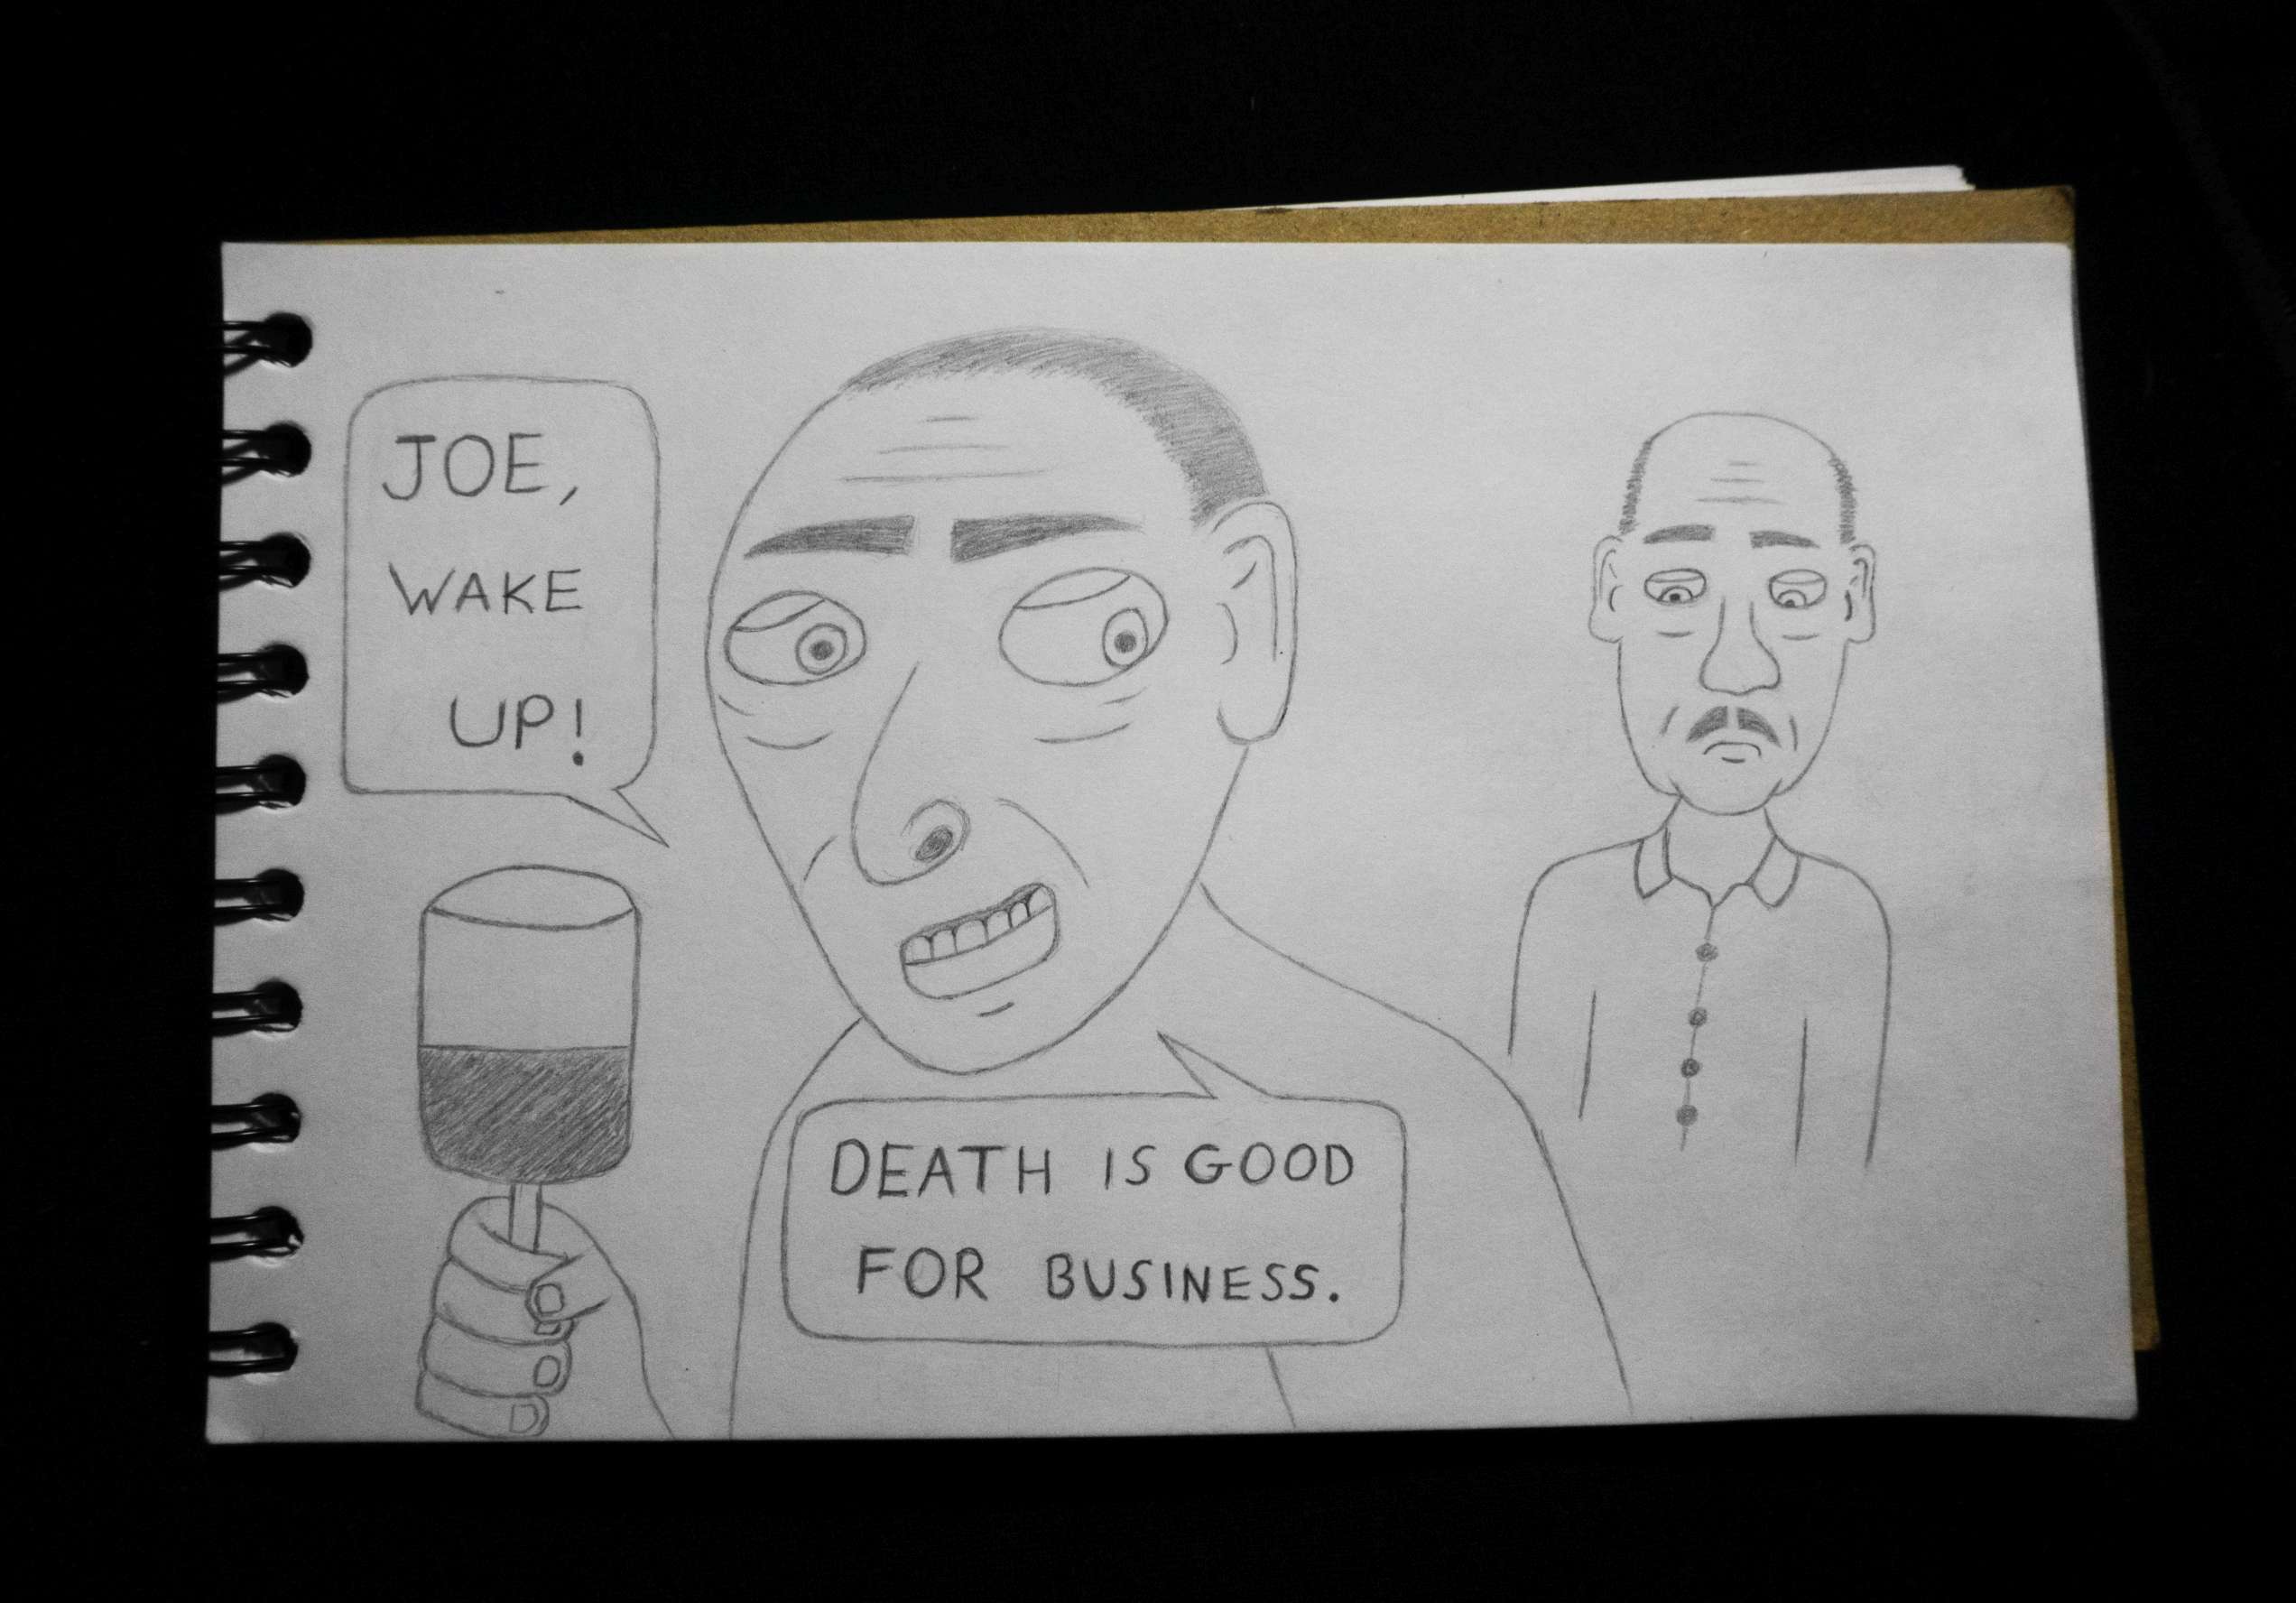 JOE,
WAKE
UP!
DEATH IS GOOD
FOR BUSINESS.